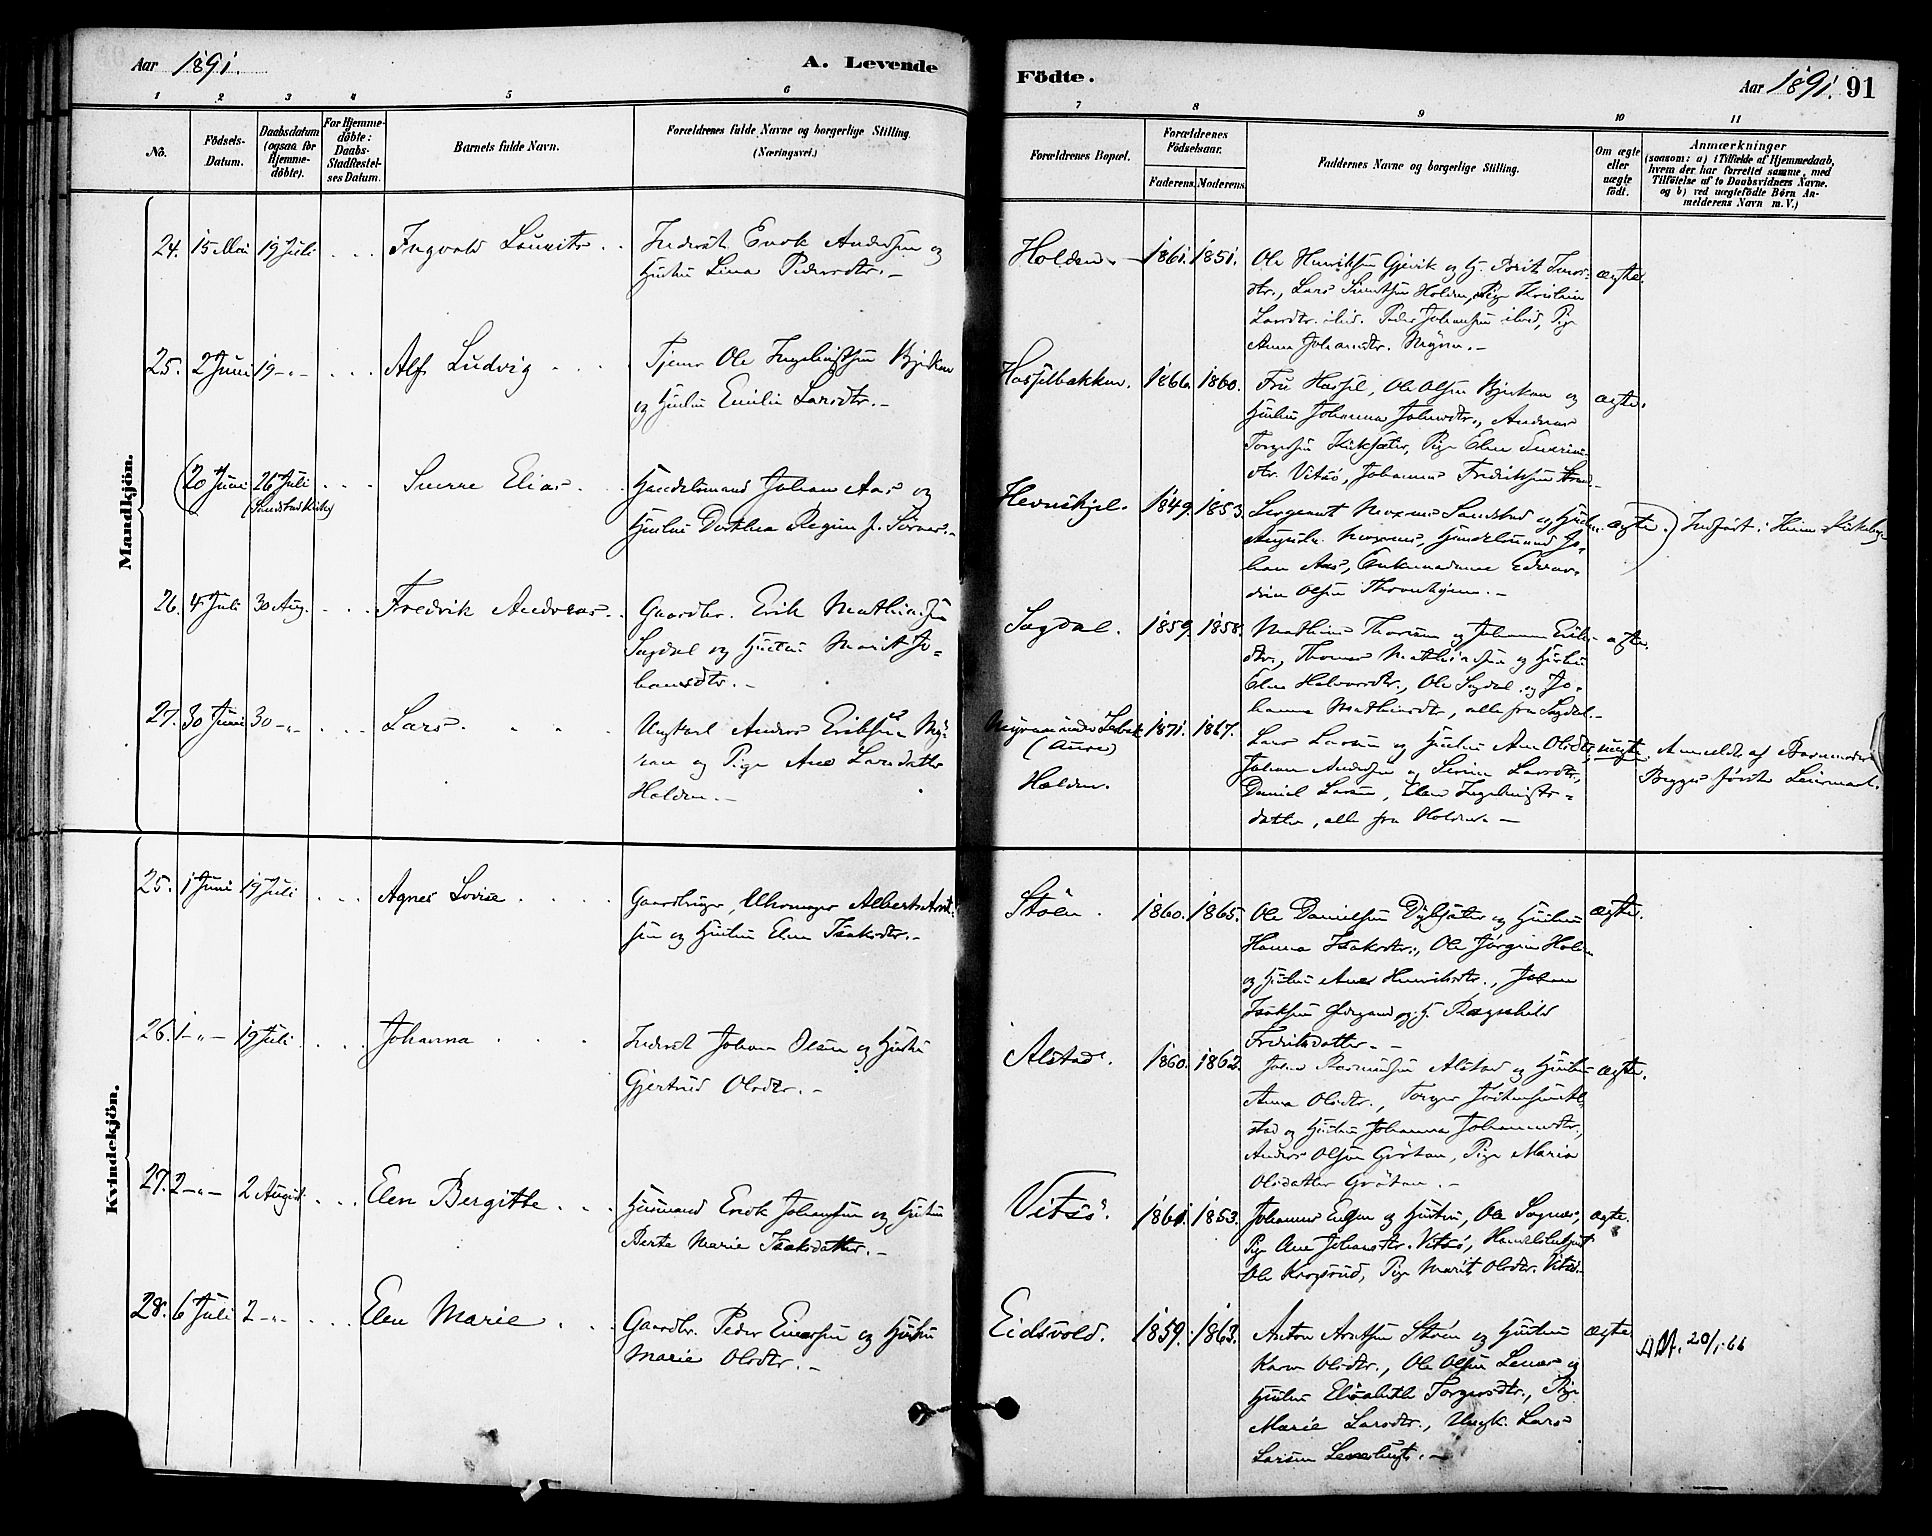 Aar 1891.
A. Levende
Födte.
Aar 1891. 91
1 2 3 4 5 6 7 8 9 10 11
No.
Födsels-
Datum.
Daabsdatum
(ogsaa for
Hjemme-
döbte).
For Hjemme-
döbte:
Daabs-
Stadfæstel-
ses Datum.
Barnets fulde Navn.
Forældrenes fulde Navne og borgerlige Stilling
(Næringsvei.)
Forældrenes Bopæl.
Forældrenes
Födselsaar.
Faderens. Moderens.
Faddernes Navne og borgerlige Stilling.
Om ægte
eller
uægte
født.
Anmærkninger
(saasom: a) i Tilfælde af Hjemmedaab,
hvem der har forrettet samme, med
Tilföielse af to Daabsvidners Navne.
og b) ved uægtefödte Börn An-
melderens Navn m.V.)
Mandkjön.
24. 15 Mai 19 Juli Ingvald Lauritz Inderst Enok Andersen og
Hustru Lina Pedersdtr.
Holden. 1861. 1851. Ole Henriksen Gjevik og H. Brit
dtr., Lars Holden, Pige
Larsdtr. ibid. Peder Johansen ibid, Pige
Anna Johansdtr. Myren.
ægte.
25. 2 Juni 19 -"- Alf Ludvig Tjener Ole Ingebrigtsen Bjerkan
og Hustru Emilie Larsdtr.
Hasselbakken. 1866. 1860. Fru Hassel, Ole Olsen Bjerkan og
Hustru Johanna Johnsdtr., Andreas
Torgersen, Pige Elen
dtr. Vitsö, Johannes Fredriksen
ægte.
(20 Juni 26 Juli
(Sandstad Kirke)
Sverre Elias Handelsmand Johan Aas og
Hustru Dorthea Regine f.
Hevnskjel. 1849. 1853. Sergeant Sandstad og Hustru
Augusta, Handelsmand Jo-
han Aas, Enkemadame Edvar-
dine Olsen Throndhjem.
ægte.) Indfört i Heim Kirkebog
26. 4 Juli 30 Aug. Fredrik Andreas Gaardbr. Erik Mathiassen
Sagdal og Hustru Marit Jo-
hansdtr.
Sagdal. 1859. 1858. Mathias Thorsen og Johanna Eriks-
dtr., Thomas Mathiassen og Hustru
Elen Halvorsdtr., Ole Sagdal og Jo-
hanna Mathiasdtr, alle fra Sagdal.
ægte.
27. 30 Juni 30 -"- Lars Ungkarl Anders Eriksen My-
ran og Pige Ane Larsdatter
Holden.
Myran under
(Aure)
Holden.
1871. 1867. Lars Larsen og Hustru Ane Olsdtr.,
Johan Andersen og Serine Larsdtr.,
Daniel Larsen, Elen Ingebrigts-
datter, alle fra Holden.
uægte. Anmeldt af Barnemoder
Begges förste Leiermaal.
Kvindekjön.
25. 1 Juni 19 Juli Agnes Lovise Gaardbruger, Uhrmager Albert Arnt-
sen og Hustru Elen Isaksdtr.
Stöen. 1860. 1865. Ole Danielsen og Hustru
Hanna Isaksdtr., Ole Jörgen Holden
og Hustru Anne Henriksdtr., Johan
Isaksen og H. Ragnhild
Fredriksdatter.
ægte.
26. 1 -"- 19 Juli Johanna Inderst Johan Olsen og Hustru
Gjertrud Olsdtr.
Alstad. 1860. 1862. Johan Rasmussen Alstad og Hustru
Anna Olsdtr., Torger Al-
stad og Hustru Johanna Johannesdtr.,
Anders Olsen Gröten, Pige Maria
Olsdatter Gröten.
ægte.
27. 2 -"- 2 August Elen Bergitte Husmand Enok Johansen og Hustru
Berte Marie Isaksdatter.
Vitsö. 1861. 1853. Johannes og Hustru, Ole,
Pige Ane Johansdtr. Vitsö, Handelsbetjent
Ole Krogsrud, Pige Marit Olsdtr. Vitsö.
ægte.
28. 6 Juli 2 -"- Elen Marie Gaardbr. Peder Einersen og Hustru
Marie Olsdtr.
Eidsvold. 1859. 1863. Anton Arntsen Stöen og Hustru
Karen Olsdtr., Ole Olsen og
Hustru Elisabeth Torgersdtr., Pige
Marie Larsdtr., Ungk. Lars
Larsen.
ægte. 20/1-66